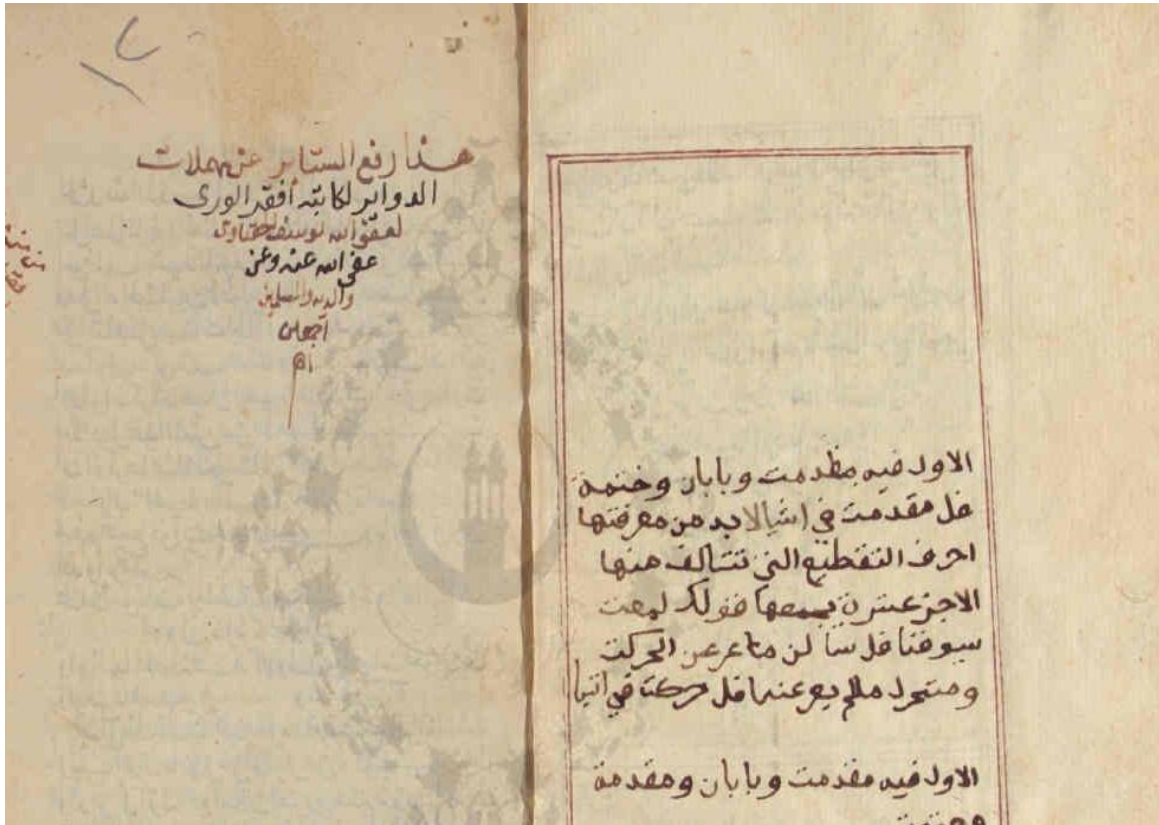 هذا رفع الستاير عن مهملات
الدواير لكاتبه أفقر الورى
لعفو الله يوسف الحفناوى
عفى الله عنه وعن
والديه والمسلمين
اجمعين
الاول فيه مقدمت وبابان وختمة
فل مقدمت في اشيا لابد من معرفتها
احرف التقطيع التي تتألف منها
الاجز عشرة يجمعها قولك لمعت
سيوفنا فل سا لن ما عر عن الحركت
ومتحرك ملم يعر عنها فل حركت في اتيا
الاول فيه مقدمت وبابان ومقدمة